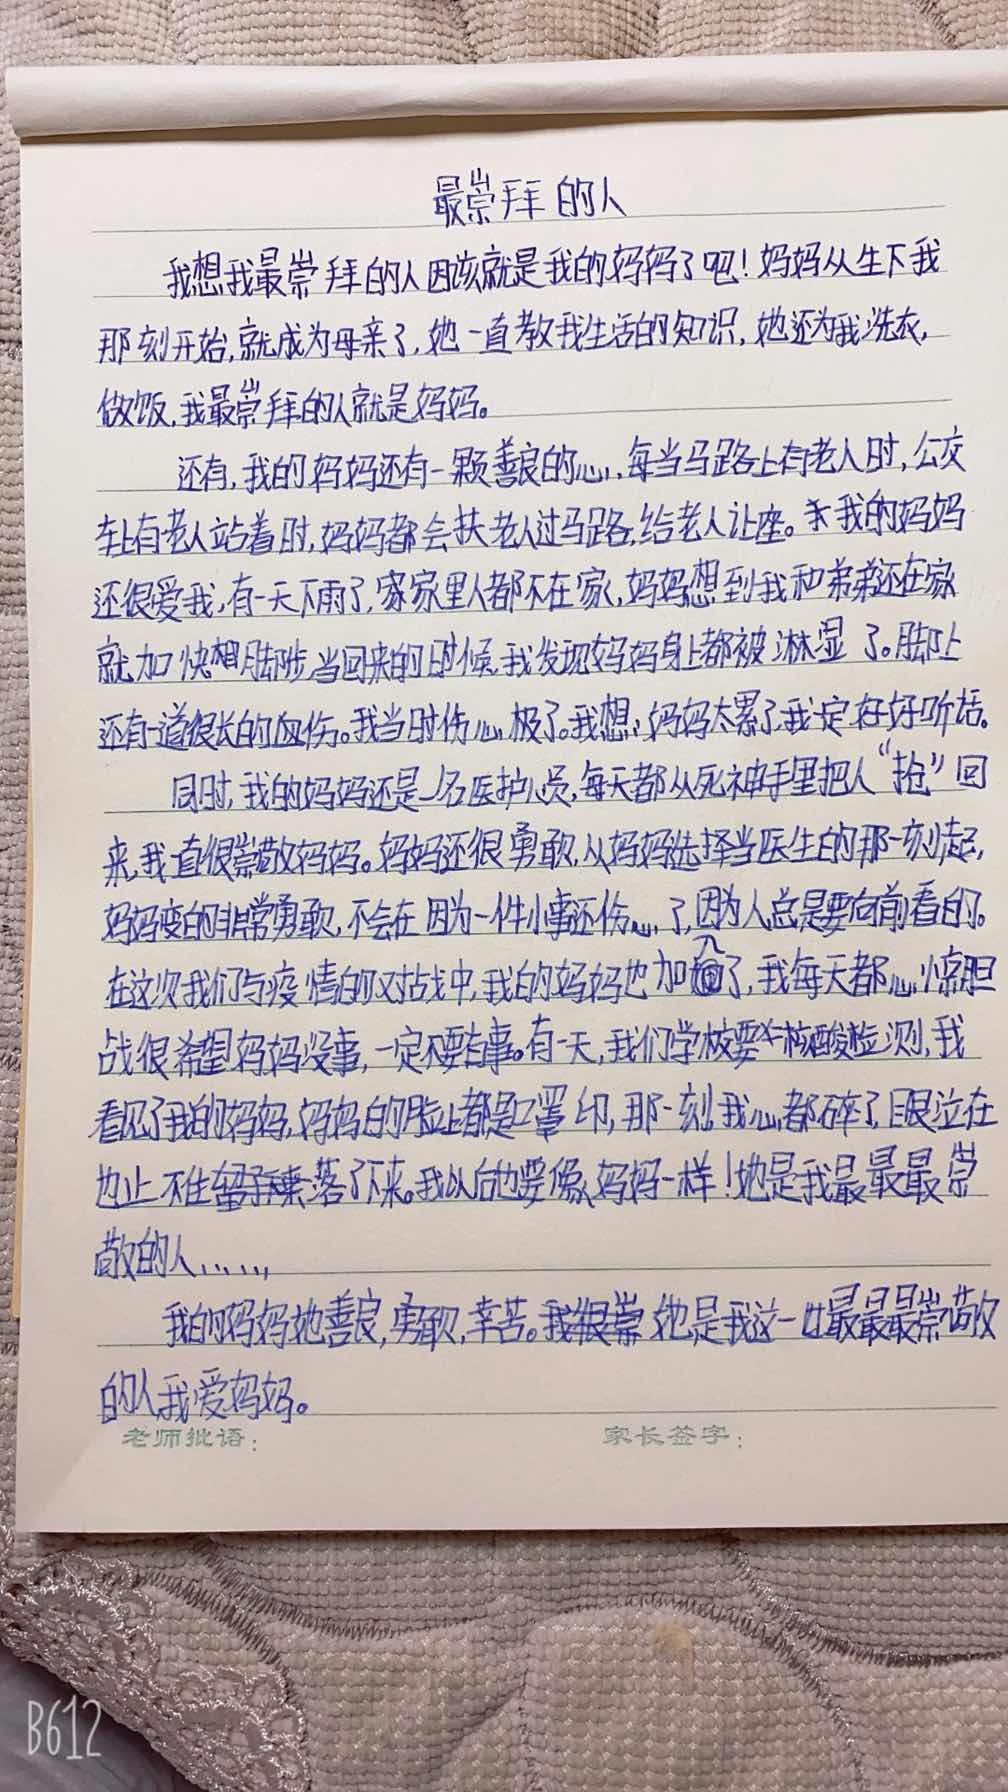 最崇拜的人
我想我最崇拜的人因该就是我的妈妈了吧！妈妈从生下我
那刻开始,就成为母亲了,她一直教我生活的知识,她还为我洗衣,
做饭,我最崇拜的人就是妈妈。
还有,我的妈妈还有一颗善良的心,每当马路上有老人时,公交
车上有老人站着时,妈妈都会扶老人过马路,给老人让座。我的妈妈
还很爱我,有一天下雨了,家里人都不在家,妈妈想到我和弟弟还在家
就加快脚步,当回来的时候,我发现妈妈身上都被淋湿了。脚上
还有一道很长的血伤。我当时伤心极了。我想,妈妈太累了,我一定好好听话。
同时,我的妈妈还是一名医护人员,每天都从死神手里把人“抢”回
来,我一直很崇敬妈妈。妈妈还很勇敢,从妈妈选择当医生的那一刻起,
妈妈变的非常勇敢,不会在因为一件小事还伤心了,因为人总是要向前看的。
在这次我们与疫情的对战中,我的妈妈也加入了,我每天都心惊胆
战很希望妈妈没事,一定不要有事。有一天,我们学校要核酸检测,我
看见了我的妈妈,妈妈的脸上都是口罩印,那一刻,我心都碎了,眼泣在
也止不住落了下来。我以后也要像妈妈一样！她是我最最最崇
敬的人......
我的妈妈她善良,勇敢,幸苦。她是我这一世最最最崇敬
的人我爱妈妈。
老师批语：
家长签字：
B612